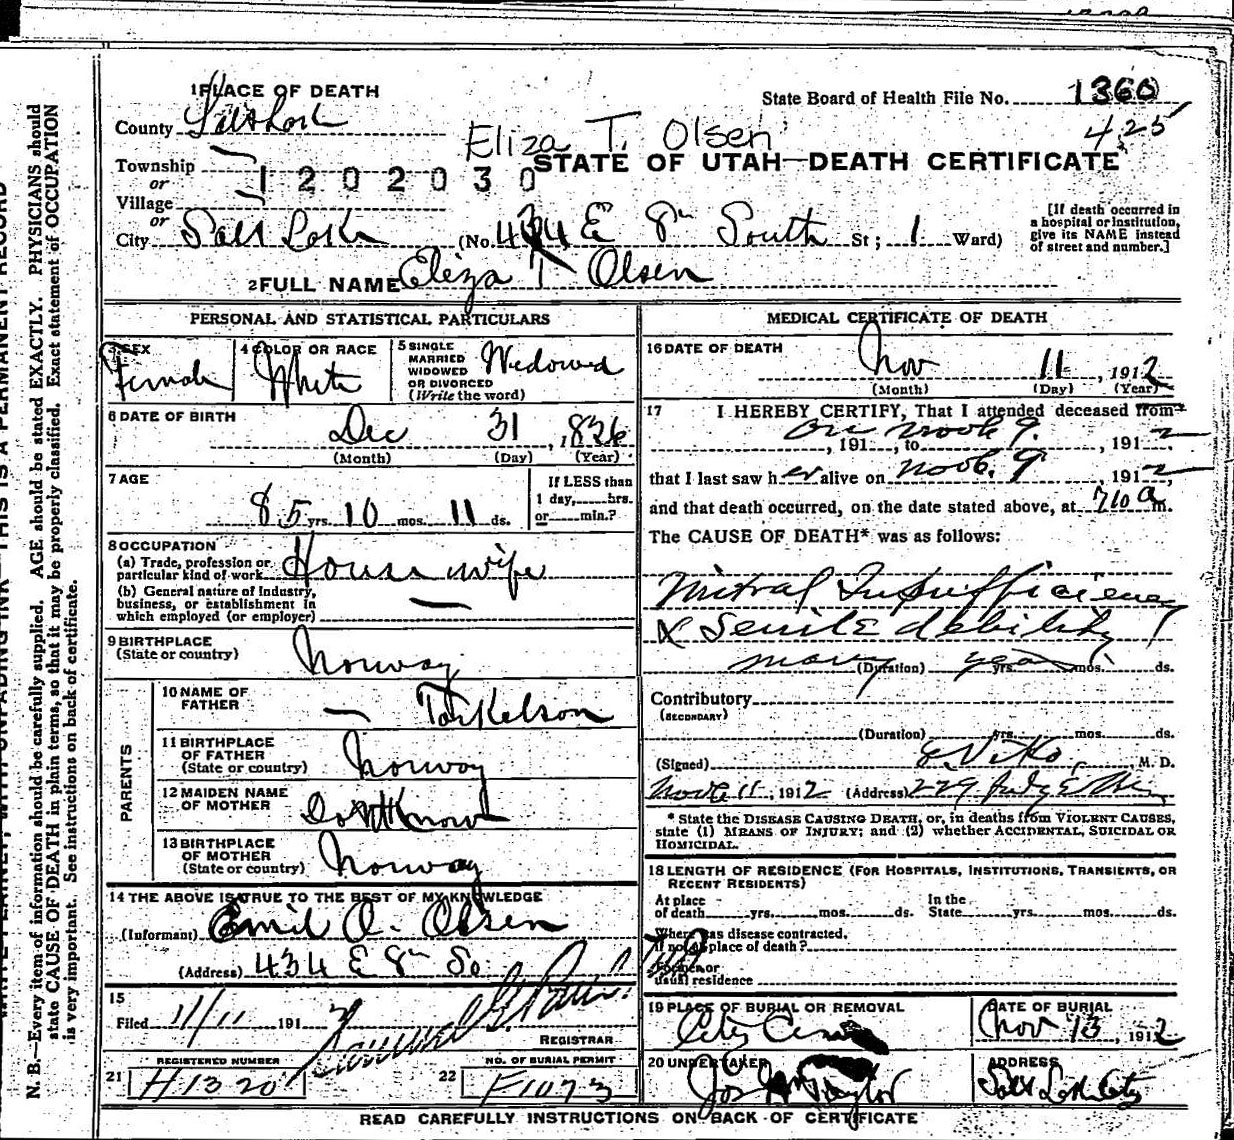 1 PLACE OF DEATH
State Board of Health File No. 1360
County Salt Lake
425
Eliza T. Olsen
Township
or
1202030
STATE OF UTAH—DEATH CERTIFICATE
Village
or
City Salt Lake (No. 434 E 8th South St; 1 Ward)
[If death occurred in a hospital or institution, give its NAME instead of street and number.]
2 FULL NAME Eliza T Olsen
PERSONAL AND STATISTICAL PARTICULARS
3 SEX
Female
4 COLOR OR RACE
White
5 SINGLE
MARRIED
WIDOWED
OR DIVORCED
(Write the word)
Widowed
6 DATE OF BIRTH
Dec 31, 1826
(Month) (Day) (Year)
7 AGE
85 yrs. 10 mos. 11 ds.
If LESS than
1 day, hrs.
or min.?
8 OCCUPATION
(a) Trade, profession or
particular kind of work House wife
(b) General nature of Industry,
business, or establishment in
which employed (or employer) —
9 BIRTHPLACE
(State or country)
Norway
PARENTS
10 NAME OF
FATHER
— Torkelson
11 BIRTHPLACE
OF FATHER
(State or country)
Norway
12 MAIDEN NAME
OF MOTHER
Don't Know
13 BIRTHPLACE
OF MOTHER
(State or country)
Norway
14 THE ABOVE IS TRUE TO THE BEST OF MY KNOWLEDGE
(Informant) Emil O. Olsen
(Address) 434 E 8th So.
15
Filed 11/11 1912
REGISTRAR
REGISTERED NUMBER
21 H1320
NO. OF BURIAL PERMIT
22 F1073
MEDICAL CERTIFICATE OF DEATH
16 DATE OF DEATH
Nov 11, 1912
(Month) (Day) (Year)
17 I HEREBY CERTIFY, That I attended deceased from
on Novb 9. , 191 , to , 1912
that I last saw her alive on Novb. 9 , 1912,
and that death occurred, on the date stated above, at 710 a m.
The CAUSE OF DEATH* was as follows:
Mitral Insufficiency
& Senile debility
many (Duration) years yrs. mos. ds.
Contributory
(SECONDARY)
(Duration) yrs. mos. ds.
(Signed) , M. D.
Novb 11, 1912 (Address) 229
* State the DISEASE CAUSING DEATH, or, in deaths from VIOLENT CAUSES,
state (1) MEANS OF INJURY; and (2) whether ACCIDENTAL, SUICIDAL OR
HOMICIDAL.
18 LENGTH OF RESIDENCE (FOR HOSPITALS, INSTITUTIONS, TRANSIENTS, OR
RECENT RESIDENTS)
At place
of death yrs. mos. ds.
In the
State yrs. mos. ds.
Where was disease contracted,
if not at place of death?
Former or
usual residence
19 PLACE OF BURIAL OR REMOVAL
City Cem
DATE OF BURIAL
Nov 13, 1912
20 UNDERTAKER
Jos Wm Taylor
ADDRESS
Salt Lake City
READ CAREFULLY INSTRUCTIONS ON BACK OF CERTIFICATE
N. B.—Every item of information should be carefully supplied. AGE should be stated EXACTLY. PHYSICIANS should
state CAUSE OF DEATH in plain terms, so that it may be properly classified. Exact statement of OCCUPATION
is very important. See instructions on back of certificate.